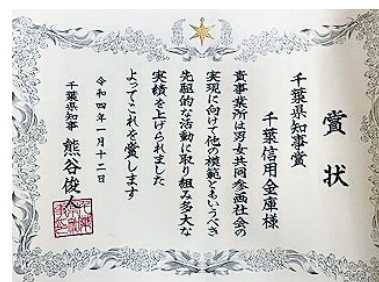 賞状
千葉県知事賞
千葉信用金庫様
貴事業所は男女共同参画社会の
実現に向けて他の模範ともいうべき
先駆的な活動に取り組み多大な
実績を上げられました
よってこれを賞します
令和四年一月十二日
千葉県知事 熊谷俊人